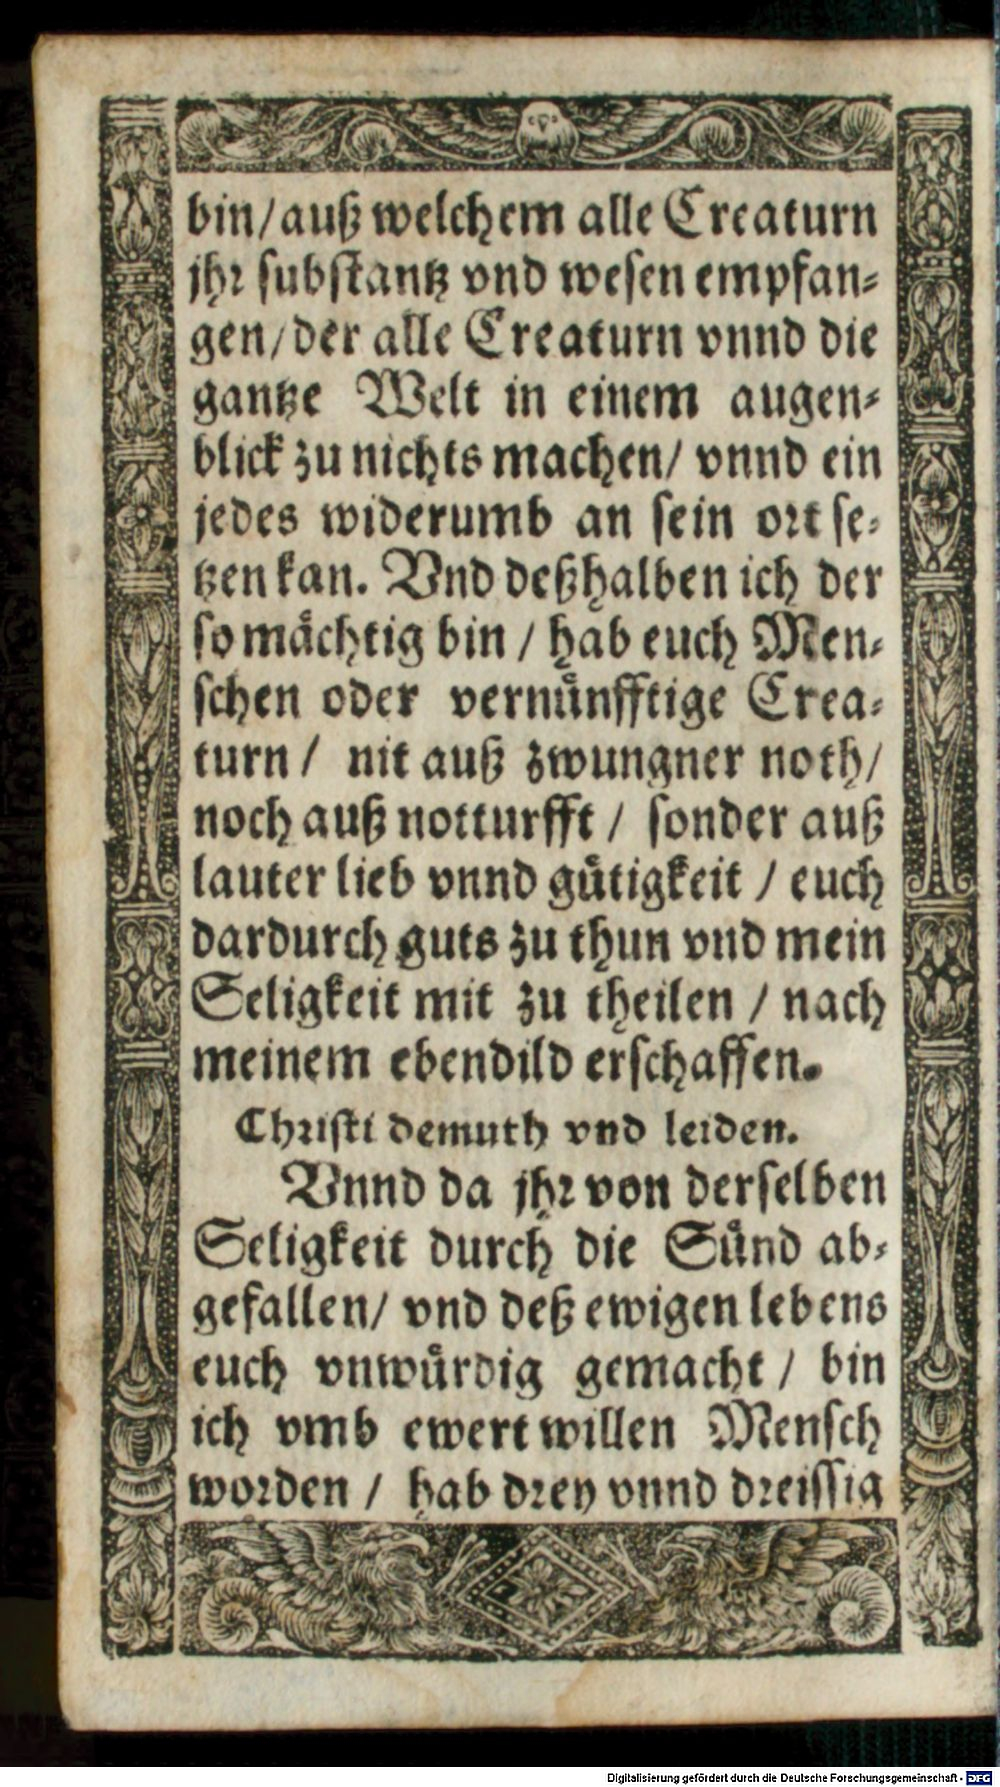 bin/auß welchem alle Creaturn
jhr substantz vnd wesen empfan-
gen/der alle Creaturn vnnd die
gantze Welt in einem augen-
blick zu nichts machen/ vnnd ein
jedes widerumb an sein ort se-
tzen kan. Vnd deßhalben ich der
so maͤchtig bin / hab euch Men-
schen oder vernuͤnfftige Crea-
turn / nit auß zwungner noth/
noch auß notturfft / sonder auß
lauter lieb vnnd guͤtigkeit / euch
dardurch guts zu thun vnd mein
Seligkeit mit zu theilen / nach
meinem ebendild erschaffen.
Christi demuth vnd leiden.
Vnnd da jhr von derselben
Seligkeit durch die Suͤnd ab-
gefallen/ vnd deß ewigen lebens
euch vnwuͤrdig gemacht / bin
ich vmb ewert willen Mensch
worden / hab drey vnnd dreissig
Digitalisierung gefördert durch die Deutsche Forschungsgemeinschaft - DFG